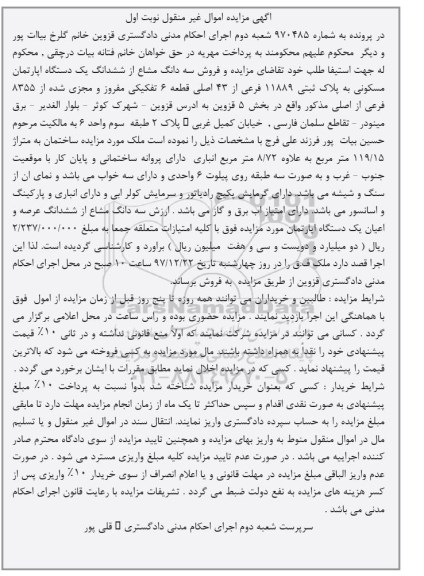 آگهی مزایده اموال غیر منقول نوبت اول
در پرونده به شماره ۹۷۰۴۸۵ شعبه دوم اجرای احکام مدنی دادگستری قزوین خانم گلرخ بیاات پور
و دیگر محکوم علیهم محکومند به پرداخت مهریه در حق خواهان خانم فتانه بیات درچقی , محکوم
له جهت استیفا طلب خود تقاضای مزایده و فروش سه دانگ مشاع از ششدانگ یک دستگاه اپارتمان
مسکونی به پلاک ثبتی ۱۱۸۸۹ فرعی از ۴۳ اصلی قطعه ۶ تفکیکی مفروز و مجزی شده از ۸۳۵۵
فرعی از اصلی مذکور واقع در بخش ۵ قزوین به ادرس قزوین - شهرک کوثر - بلوار الغدیر - برق
مینودر - تقاطع سلمان فارسی , خیابان کمیل غربی پلاک ۲ طبقه سوم واحد ۶ به مالکیت مرحوم
حسین بیات پور فرزند علی فرج با مشخصات ذیل را نموده است ملک مورد مزایده ساختمان به متراژ
۱۱۹/۱۵ متر مربع به علاوه ۸/۷۲ متر مربع انباری دارای پروانه ساختمانی و پایان کار با موقعیت
جنوب - غرب و به صورت سه طبقه روی پیلوت ۶ واحدی و دارای سه خواب می باشد و نمای ان از
سنگ و شیشه می باشد. دارای گرمایش پکیج رادیاتور و سرمایش کولر ابی و دارای انباری و پارکینگ
و اسانسور می باشد، دارای امتیاز اب برق و گاز می باشد . ارزش سه دانگ مشاع از ششدانگ عرصه و
اعیان یک دستگاه اپارتمان مورد مزایده فوق با کلیه امتیازات متعلقه جمعا به مبلغ ۲/۲۳۷/۰۰۰/۰۰۰
ریال ( دو میلیارد و دویست و سی و هفت میلیون ریال ) براورد و کارشناسی گردیده است. لذا این
اجرا قصد دارد ملک فوق را در روز چهارشنبه تاریخ ۹۷/۱۲/۲۲ ساعت ۱۰ صبح در محل اجرای احکام
مدنی دادگستری قزوین از طریق مزایده به فروش برساند.
شرایط مزایده : طالبین و خریداران می توانند همه روزه تا پنج روز قبل از زمان مزایده از امول فوق
با هماهنگی این اجرا بازدید نمایند . مزایده حضوری بوده و راس ساعت در محل اعلامی برگزار می
گردد . کسانی می توانند در مزایده شرکت نمایند که اولاً منع قانونی نداشته و در ثانی ۱۰٪ قیمت
پیشنهادی خود را نقدا به همراه داشته باشند. مال مورد مزایده به کسی فروخته می شود که بالاترین
قیمت را پیشنهاد نماید . کسی که در مزایده اخلال نماید مطابق مقررات با ایشان برخورد می گردد .
شرایط خریدار : کسی که بعنوان خریدار مزایده شناخته شد بدوا نسبت به پرداخت ۱۰٪ مبلغ
پیشنهادی به صورت نقدی اقدام و سپس حداکثر تا یک ماه از زمان انجام مزایده مهلت دارد تا مابقی
مبلغ مزایده را به حساب سپرده دادگستری واریز نمایند. انتقال سند در اموال غیر منقول و یا تسلیم
مال در اموال منقول منوط به واریز بهای مزایده و همچنین تایید مزایده از سوی دادگاه محترم صادر
کننده اجراییه می باشد . در صورت عدم تایید مزایده کلیه مبلغ واریزی مسترد می شود . در صورت
عدم واریز الباقی مبلغ مزایده در مهلت قانونی و یا اعلام انصراف از سوی خریدار ۱۰٪ واریزی پس از
کسر هزینه های مزایده به نفع دولت ضبط می گردد . تشریفات مزایده با رعایت قانون اجرای احکام
مدنی می باشد .
سرپرست شعبه دوم اجرای احکام مدنی دادگستری قلی پور